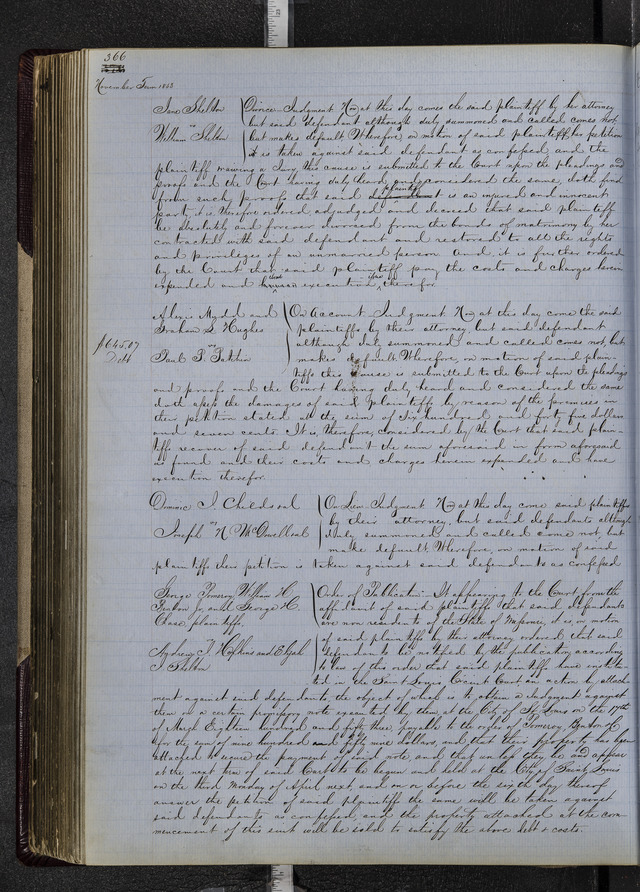 366
November Term 1853
Jane Shelton
vs
William Shelton
Divorce Judgment Now at this day comes the said plaintiff by her attorney
but said defendant although duly summoned and called comes not,
but makes default Wherefore, on motion of said plaintiff, her petition
it is taken against said defendant as confessed and the
plaintiff waiving a Jury this cause is submitted to the Court upon the pleadings and
proofs and the Court having duly heard and considered the same, doth find
from such proofs that said plaintiff is an injured and innocent
party, it is therefore ordered adjudged and decreed that said plaintiff
be absolutely and forever divorced from the bonds of matrimony by her
contracted with said defendant and restored to all the rights
and privileges of an unmarried person. And it is further ordered
by the Court that said plaintiff pay the costs and charges herein
expended and execution therefor
$645.07
Debt
and
Graham L. Hughes
vs
Paul
On Account Judgment Now at this day come the said
plaintiffs by their attorney, but said defendant
although duly summoned and called comes not, but
makes default Wherefore, on motion of said plain-
tiffs this cause is submitted to the Court upon the pleadings
and proofs, and the Court having duly heard and considered the same
doth assess the damages of said plaintiffs by reason of the premises in
their petition stated at the sum of six hundred and forty five dollars
and seven cents. It is, therefore, considered by the Court that said plain-
tiffs recover of said defendant the sum aforesaid in form aforesaid
as found and their costs and charges herein expended and have
execution therefor.
vs
Joseph N.
On Lien Judgment Now at this day come said plaintiffs
by their attorney, but said defendants although
duly summoned and called come not, but
make default Wherefore, on motion of said
plaintiffs their petition is taken against said defendants as confessed
George Pomeroy William H.
Jr. and George H.
Chase plaintiffs,
vs
Andrew J. Hopkins and
J Shelton
Order of Publication. It appearing to the Court from the
affidavit of said plaintiffs that said defendants
are non residents of the State of Missouri, it is, on motion
of said plaintiffs by their attorney ordered that said
defendants be notified by the publication according
to law of this order that said plaintiffs have institu-
ted in the Saint Louis Circuit Court an action by attach-
ment against said defendants, the object of which is to obtain a Judgment against
them on a certain promissory note executed by them at the City of St Louis on the 17th
of March Eighteen hundred and fifty three payable to the order of Pomeroy
for the sum of nine hundred and fifty nine dollars, and that their property has been
attached to secure the payment of said note and that unless they be and appear
at the next term of said Court to be begun and held at the City of Saint Louis
on the third Monday of April next and on or before the sixth day thereof
answer the petition of said plaintiffs the same will be taken against
said defendants as confessed and the property attached at the com-
mencement of this suit will be sold to satisfy the above debt & costs.